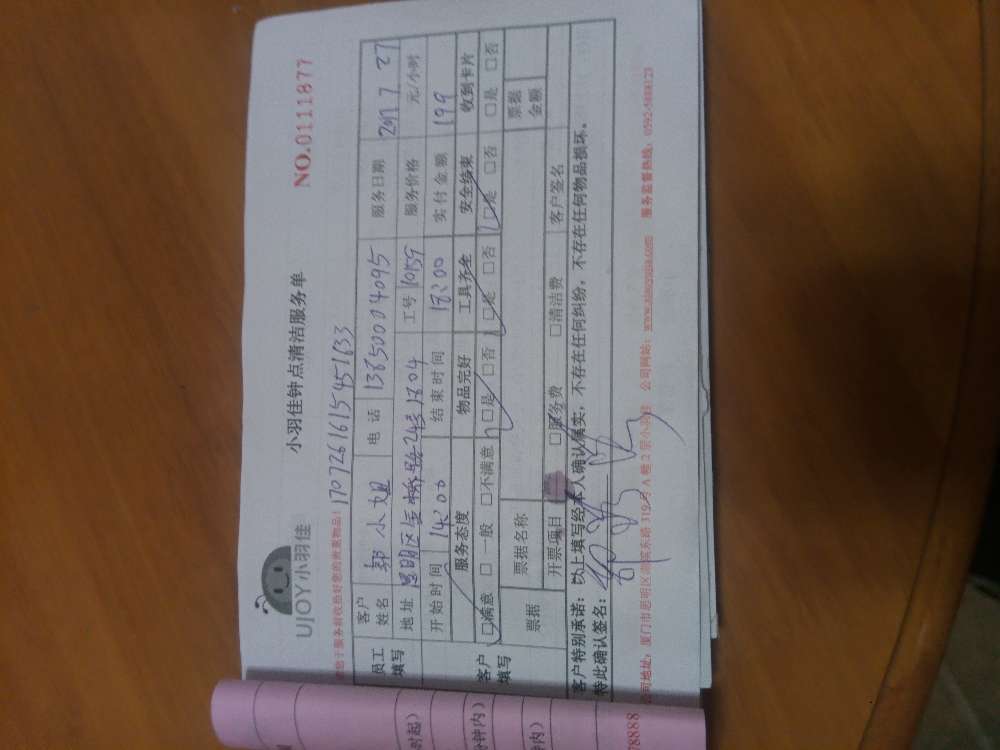 UJOY小羽佳
小羽佳钟点清洁服务单
NO.0111877
170726161545 1633
员工填写
客户姓名 郭小姐 电话 13850004095 服务日期 2017 7 27
地址 思明区金桥路24号1804 工号 10159 服务价格 元/小时
开始时间 14:00 结束时间 18:00 实付金额 199
客户填写
服务态度 物品完好 工具齐全 安全结束 收到卡片
□满意 □一般 □不满意 □是 □否 □是 □否 □是 □否 □是 □否
票据 票据名称 票据金额
开票项目 □服务费 □清洁费 客户签名
客户特别承诺：以上填写经本人确认属实，不存在任何纠纷，不存在任何物品损坏。
特此确认签名：
公司地址：厦门市思明区湖滨东路319号A幢2层小羽佳 公司网站：www.xiaoyujia.com 服务监督热线：0592-5888123
时起）
钟内）
钟内）
78888